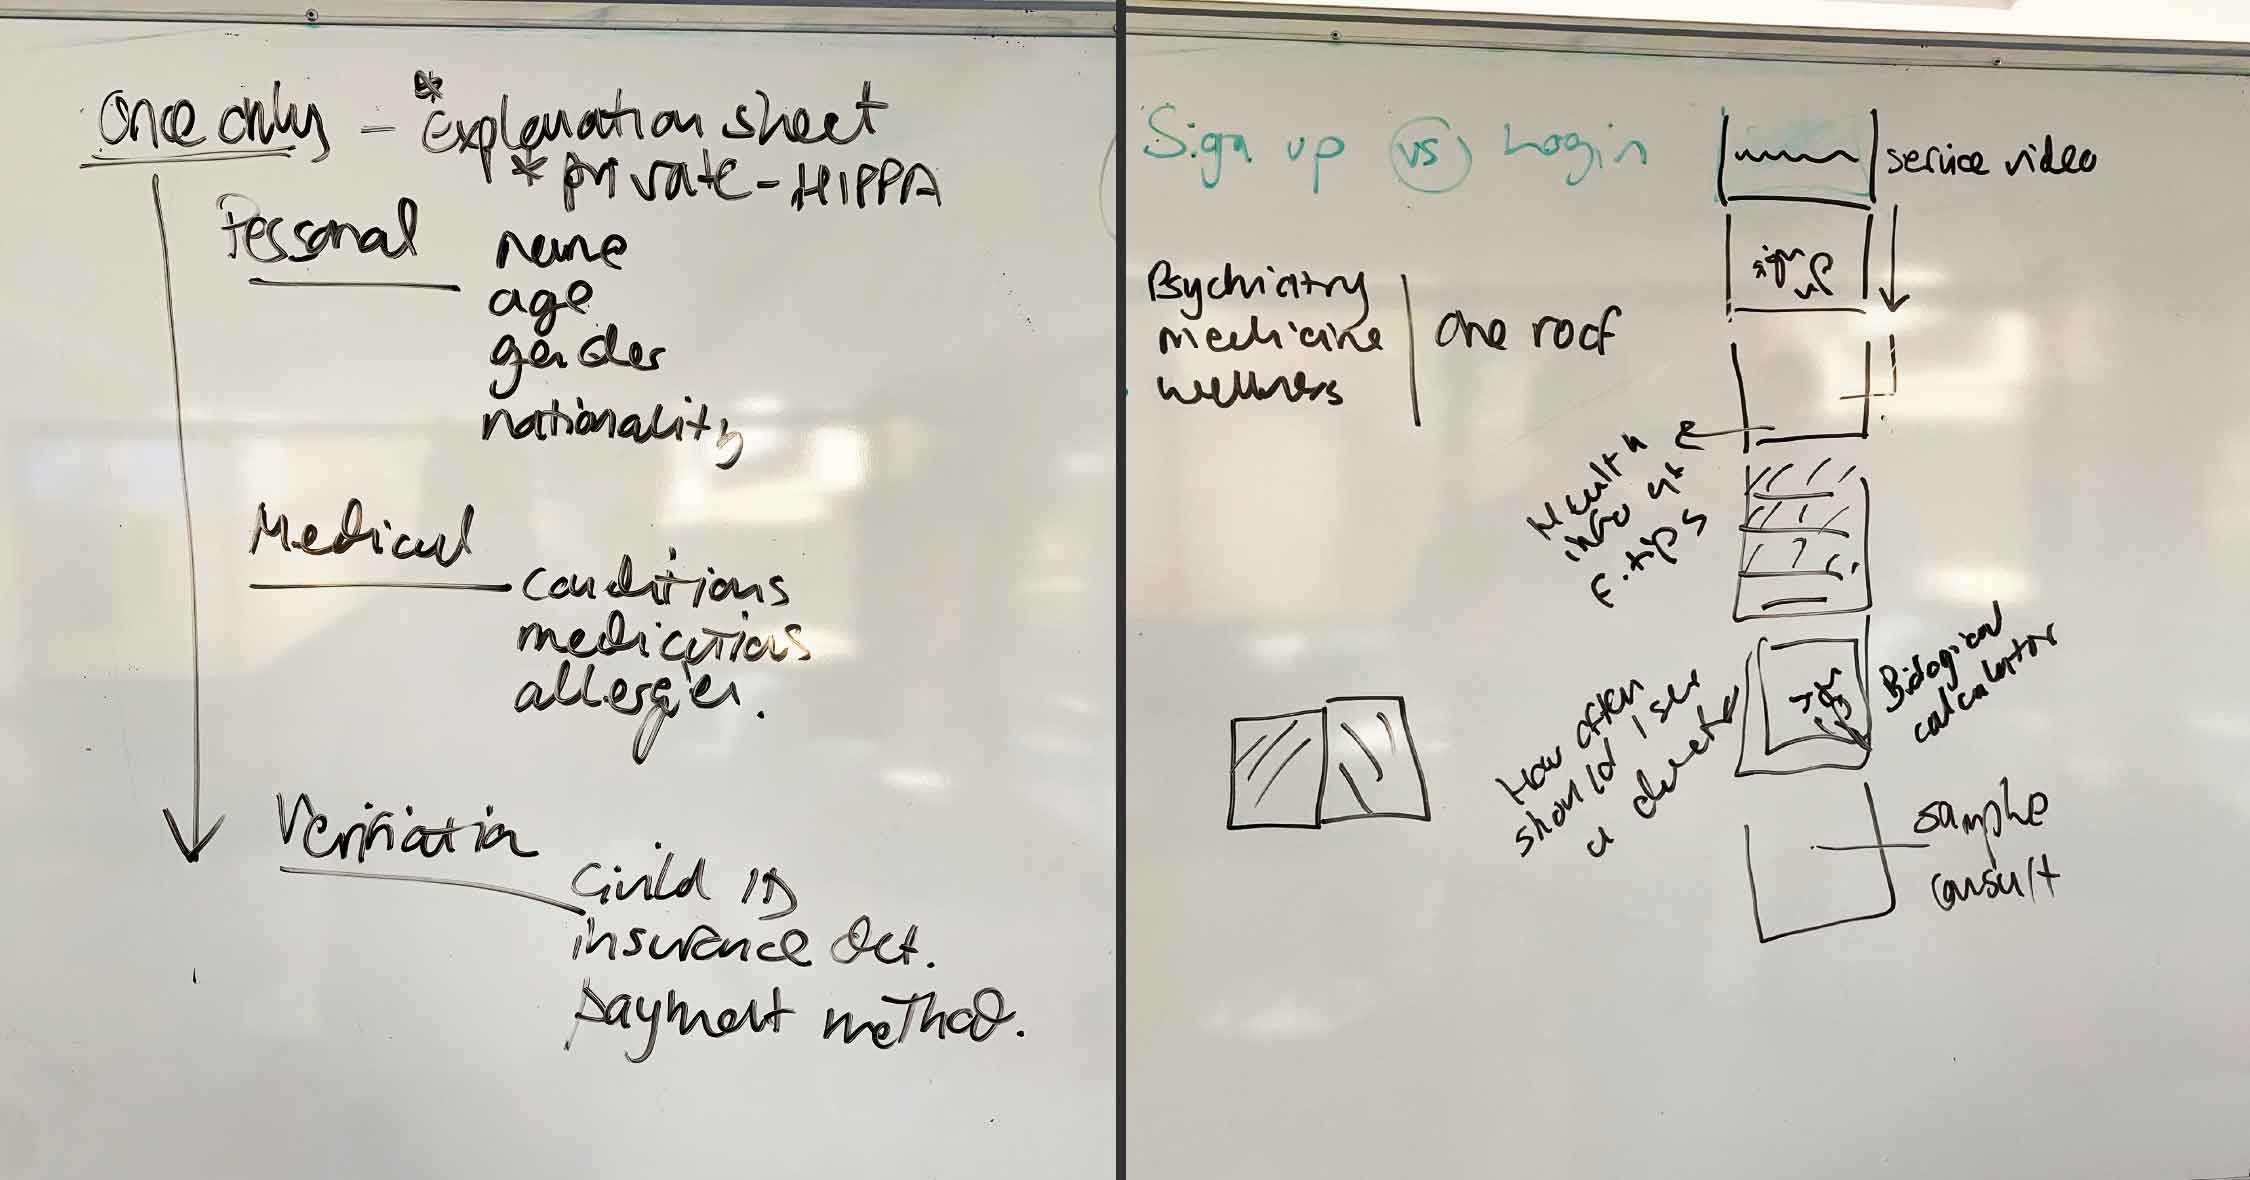 Once only - * Explanation sheet
* private - HIPPA
Personal
name
age
gender
nationality
Medical
conditions
medications
allergies.
Verification
ID
insurance det.
payment method.
Sign up vs Login
service video
sign up
Psychiatry
medicine
wellness
one roof
Health
info at
F. tips
Biological
calculator
How often
should I see
a doctor
sample
consult